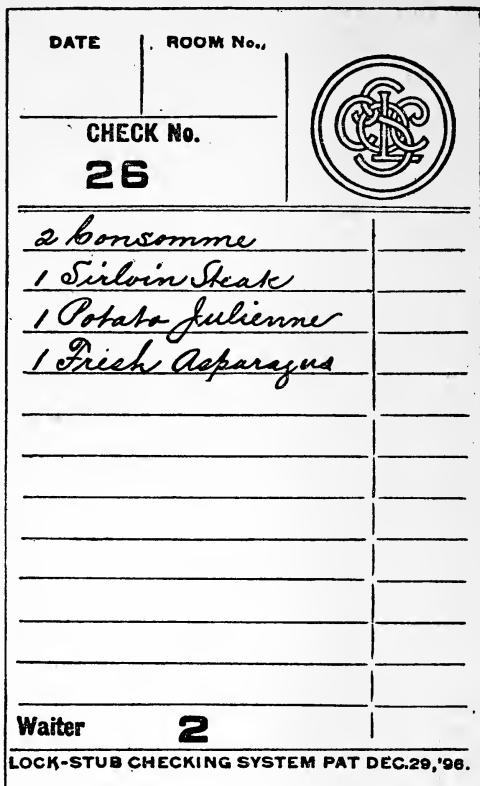 DATE ROOM No.,
CHECK No.
26
2 Consomme
1 Sirloin Steak
1 Potato Julienne
1 Fresh Asparagus
Waiter 2
LOCK-STUB CHECKING SYSTEM PAT DEC.29,'96.